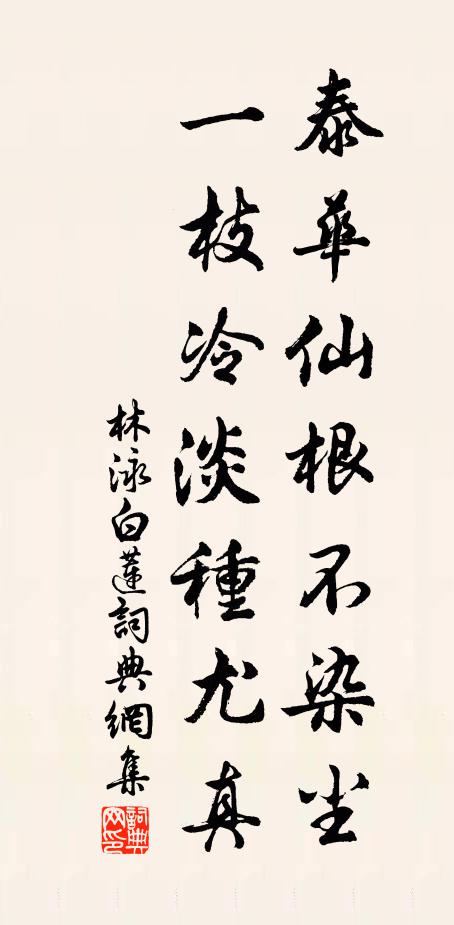 泰華仙根不染尘
一枝冷淡種尤真
林泳白蓮詞典網集
詞典網印